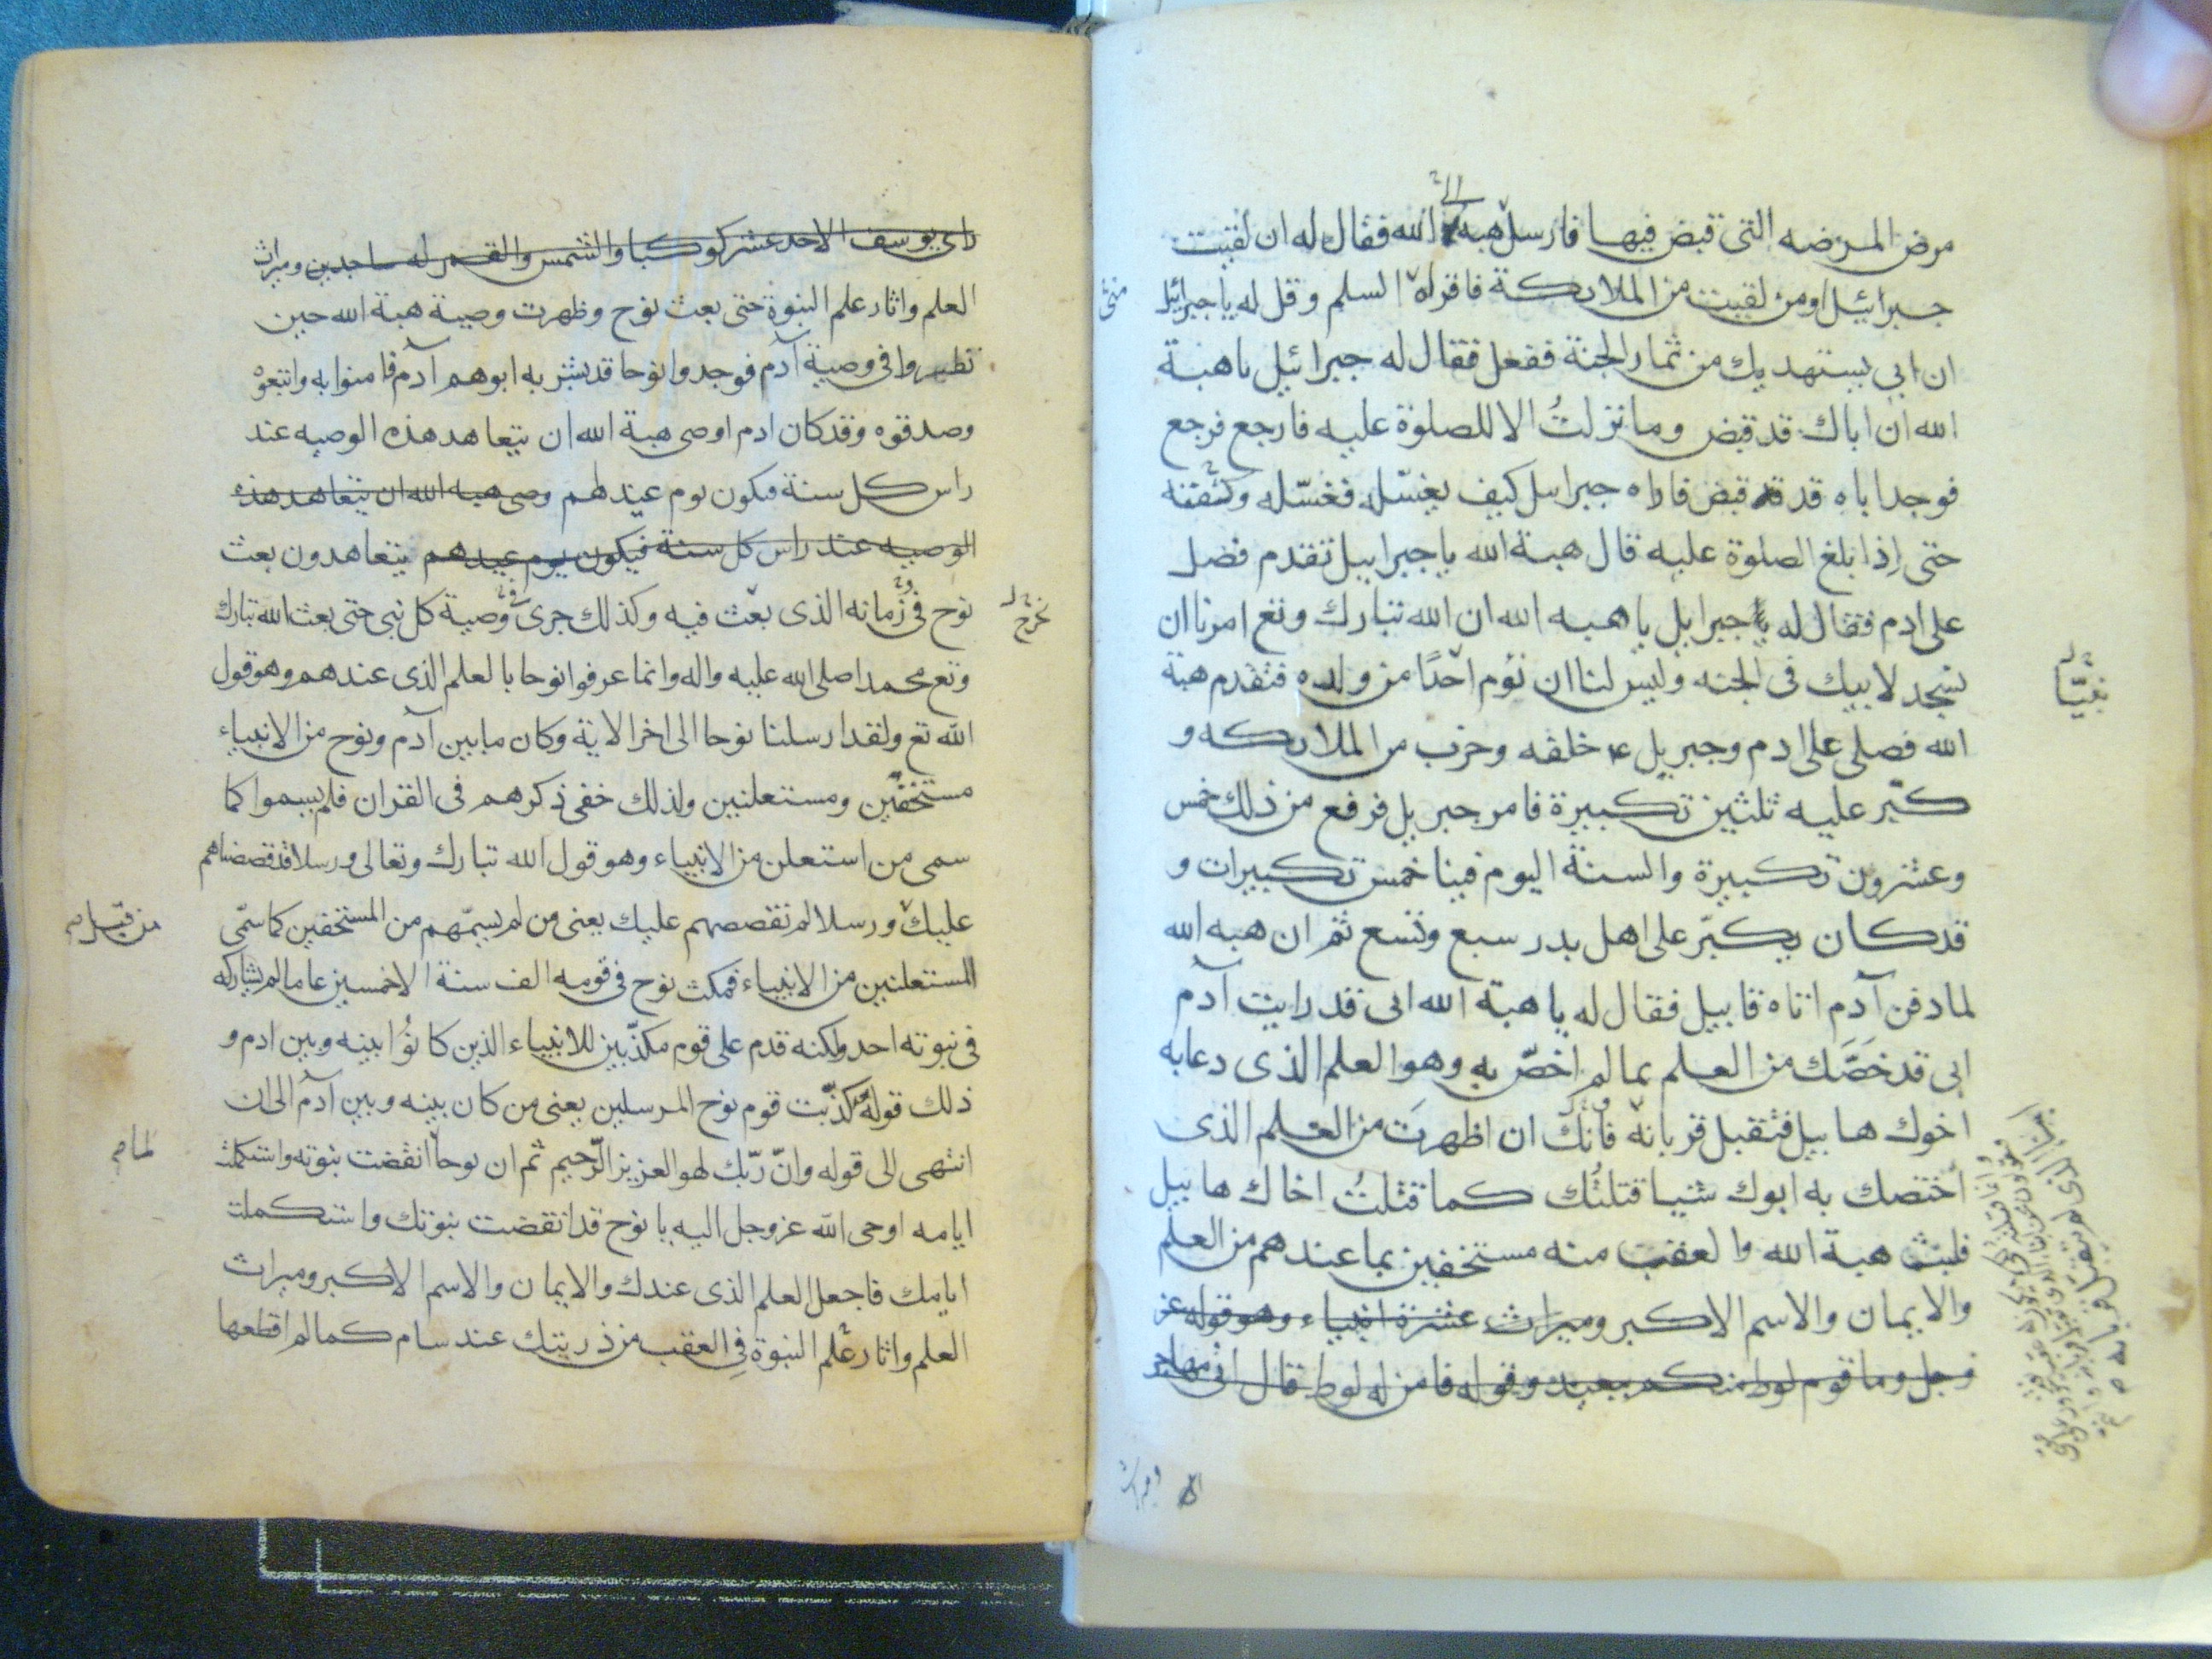 مرض المرضه التى قبض فيها فارسل هبة الله فقال له ان لقيت
جبرائيل اومن لقيت من الملائكة فاقراه السلم وقل له يا جبرائيل
ان ابي يستهديك من ثمار الجنة ففعل فقال له جبرائيل يا هبة
الله ان اباك قد قبض وما نزلتُ الا للصلوة عليه فارجع فرجع
فوجد اباه قد قبض فاراه جبرايل كيف يغسّله فغسّله وكفنه
حتى إذا بلغ الصلوة عليه قال هبة الله يا جبراييل تقدم فصل
على ادم فقال له جبرايل يا هبه الله ان الله تبارك وتع امرنا ان
نسجد لابيك في الجنه وليس لنا ان نؤم احدًا من ولده فتقدم هبة
الله فصلى على ادم وجبريل ع خلفه وحزب من الملائكه و
كبّر عليه ثلثين تكبيرة فامر جبريل فرفع من ذلك خمس
وعشرون تكبيرة والسنة اليوم فينا خمس تكبيرات و
قد كان يكبّر على اهل بدر سبع وتسع ثم ان هبه الله
لما دفن آدم اتاه قابيل فقال له يا هبة الله انى قد رايت آدم
ابى قد خصَّك من العلم بما لم اخصّ به وهو العلم الذى دعا به
اخوك هابيل فتقبل قربانه فانك ان اظهرتَ من العلم الذى
اختصك به ابوك شيا قتلتُك كما قتلتُ اخاك هابيل
فلبث هبة الله والعقب منه مستخفين بما عندهم من العلم
والايمان والاسم الاكبر وميراث عشرة انبياء وهو قوله عز
وجل وما قوم لوط منكم ببعيد وقوله فامن له لوط قال انى مهاجر
راى يوسف الاحد عشر كوكبا والشمس والقمر له ساجدين وميراث
العلم واثار علم النبوة حتى بعث نوح وظهرت وصية هبة الله حين
نظروا في وصية آدم فوجدوا نوحا قد بشر به ابوهم آدم فامنوا به واتبعوه
وصدقوه وقد كان ادم اوصى هبة الله ان يتعاهد هذه الوصيه عند
راس كل سنة فيكون يوم عيدهم وصى هبه الله ان يتعاهد هذه
الوصيه عند راس كل سنة فيكون يوم عيدهم يتعاهدون بعث
نوح في زمانه الذى بعث فيه وكذلك جرى في وصية كل نبى حتى بعث الله تبارك
وتع محمدا صلى الله عليه واله وانما عرفوا نوحا بالعلم الذى عندهم وهو قول
الله تع ولقد ارسلنا نوحا الى اخر الاية وكان ما بين آدم ونوح من الانبياء
مستخفين ومستعلنين ولذلك خفى ذكرهم فى القران فلم يسموا كما
سمى من استعلن من الانبياء وهو قول الله تبارك وتعالى ورسلا قد قصصناهم
عليك ورسلا لم نقصصهم عليك يعنى من لم يسمّهم من المستخفين كما سمّى
المستعلنين من الانبياء فمكث نوح فى قومه الف سنة الا خمسين عاما لم يشاركه
فى نبوته احد ولكنه قدم على قوم مكذّبين للانبياء الذين كانوُا بينه وبين ادم و
ذلك قوله كذّبت قوم نوح المرسلين يعنى من كان بينه وبين آدم الى ان
انتهى الى قوله وانّ ربّك لهو العزيز الرّحيم ثم ان نوحا انقضت نبوته واستكملت
ايامه اوحى الله عز وجل اليه يا نوح قد انقضت نبوتك واستكملت
ايامك فاجعل العلم الذى عندك والايمان والاسم الاكبر وميراث
العلم واثار علم النبوة في العقب من ذريتك عند سام كما لم اقطعها